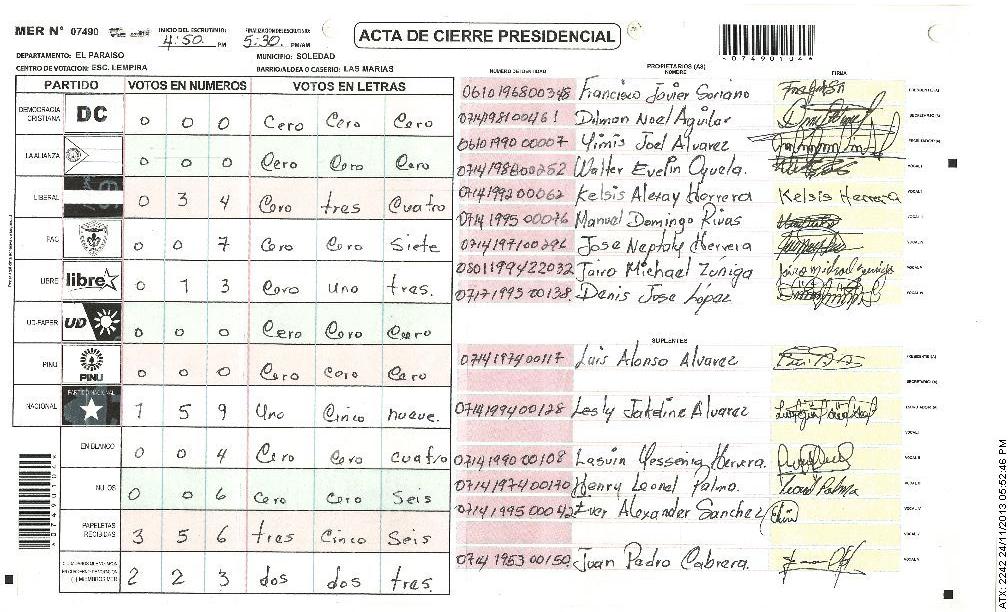 MER N° 07490 INICIO DEL ESCRUTINIO: 4:50 PM FINALIZACION DE ESCRUTINIO: 5:30 PM/AM
ACTA DE CIERRE PRESIDENCIAL
*07490104*
DEPARTAMENTO: EL PARAISO MUNICIPIO: SOLEDAD
CENTRO DE VOTACION: ESC. LEMPIRA BARRIO/ALDEA O CASERIO: LAS MARIAS
PARTIDO VOTOS EN NUMEROS VOTOS EN LETRAS
DEMOCRACIA CRISTIANA DC 0 0 0 Cero Cero Cero
LA ALIANZA 0 0 0 Cero Cero Cero
LIBERAL 0 3 4 Cero tres Cuatro
PAC 0 0 7 Cero Cero Siete
LIBRE libre 0 1 3 Cero Uno tres.
UD-FAPER UD 0 0 0 Cero Cero Cero
PINU PINU 0 0 0 Cero Cero Cero
NACIONAL PARTIDO NACIONAL 1 5 9 Uno Cinco nueve.
EN BLANCO 0 0 4 Cero Cero cuatro
NULOS 0 0 6 Cero Cero Seis
PAPELETAS RECIBIDAS 3 5 6 tres Cinco Seis
2 2 3 dos dos tres.
NUMERO DE IDENTIDAD PROPIETARIOS (AS) NOMBRE FIRMA
0610196800348 Francisco Javier Soriano PRESIDENTE (A)
0714198100461 Dilman Noel Aguilar SECRETARIO (A)
0610199000007 Yimis Joel Alvarez ESCRUTADOR (A)
0714198800252 Walter Evelin Oyuela. VOCAL I
0714199200062 Kelsis Herrera Kelsis Herrera
0714199500076 Manuel Domingo Rivas
0714197100296 Jose Neptaly Herrera
0801199422032 Jairo Michael Zúniga
0717199300138. Denis Jose López
SUPLENTES
0714197400117 Luis Alonso Alvarez PRESIDENTE (A)
SECRETARIO (A)
0714199400128 Lesly Alvarez ESCRUTADOR (A)
VOCAL I
0714199000108 Yessenia Herrera.
0714197400170 Henry Leonel Palma.
0714199500042 Ever Alexander Sanchez
0714195300150 Juan Pedro Cabrera.
*07490104*
ATX: 2242 24/11/2013 05:52:46 PM